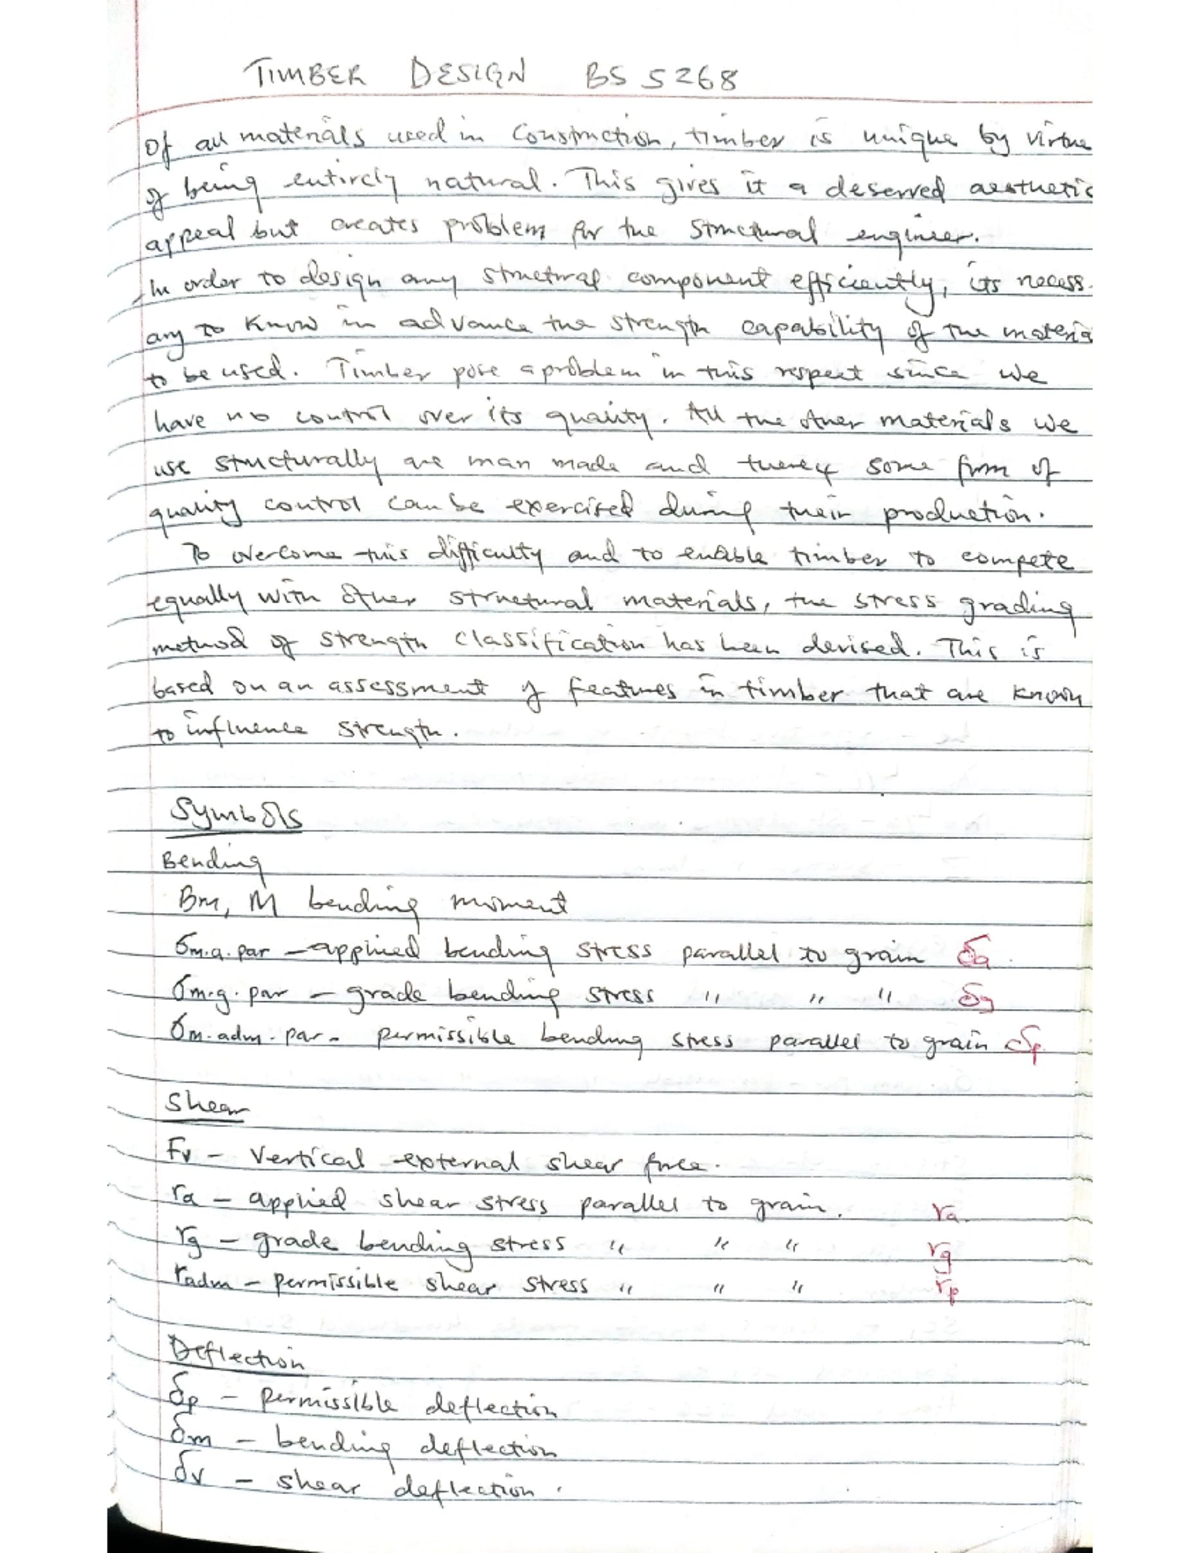 TIMBER DESIGN BS 5268
Of all materials used in Construction, timber is unique by virtue
of being entirely natural. This gives it a deserved aesthetic
appeal but creates problem for the structural engineer.
In order to design any structural component efficiently, its necess-
ary to know in advance the strength capability of the materia
to be used. Timber pose a problem in this respect since we
have no control over its quality. All the other materials we
use structurally are man made and some form of
quality control can be exercised during their production.
To overcome this difficulty and to enable timber to compete
equally with other structural materials, the stress grading
method of strength classification has been devised. This is
based on an assessment of features in timber that are known
to influence strength.
Symbols
Bending
Bm, M bending moment
σm.a.par - applied bending stress parallel to grain σa.
σm.g.par - grade bending stress " " " σg
σm.adm.par - permissible bending stress parallel to grain σp.
Shear
Fv - Vertical external shear force.
ra - applied shear stress parallel to grain. ra.
rg - grade bending stress " " " rg
radm - permissible shear stress " " " rp
Deflection
δp - permissible deflection
δm - bending deflection
δv - shear deflection.